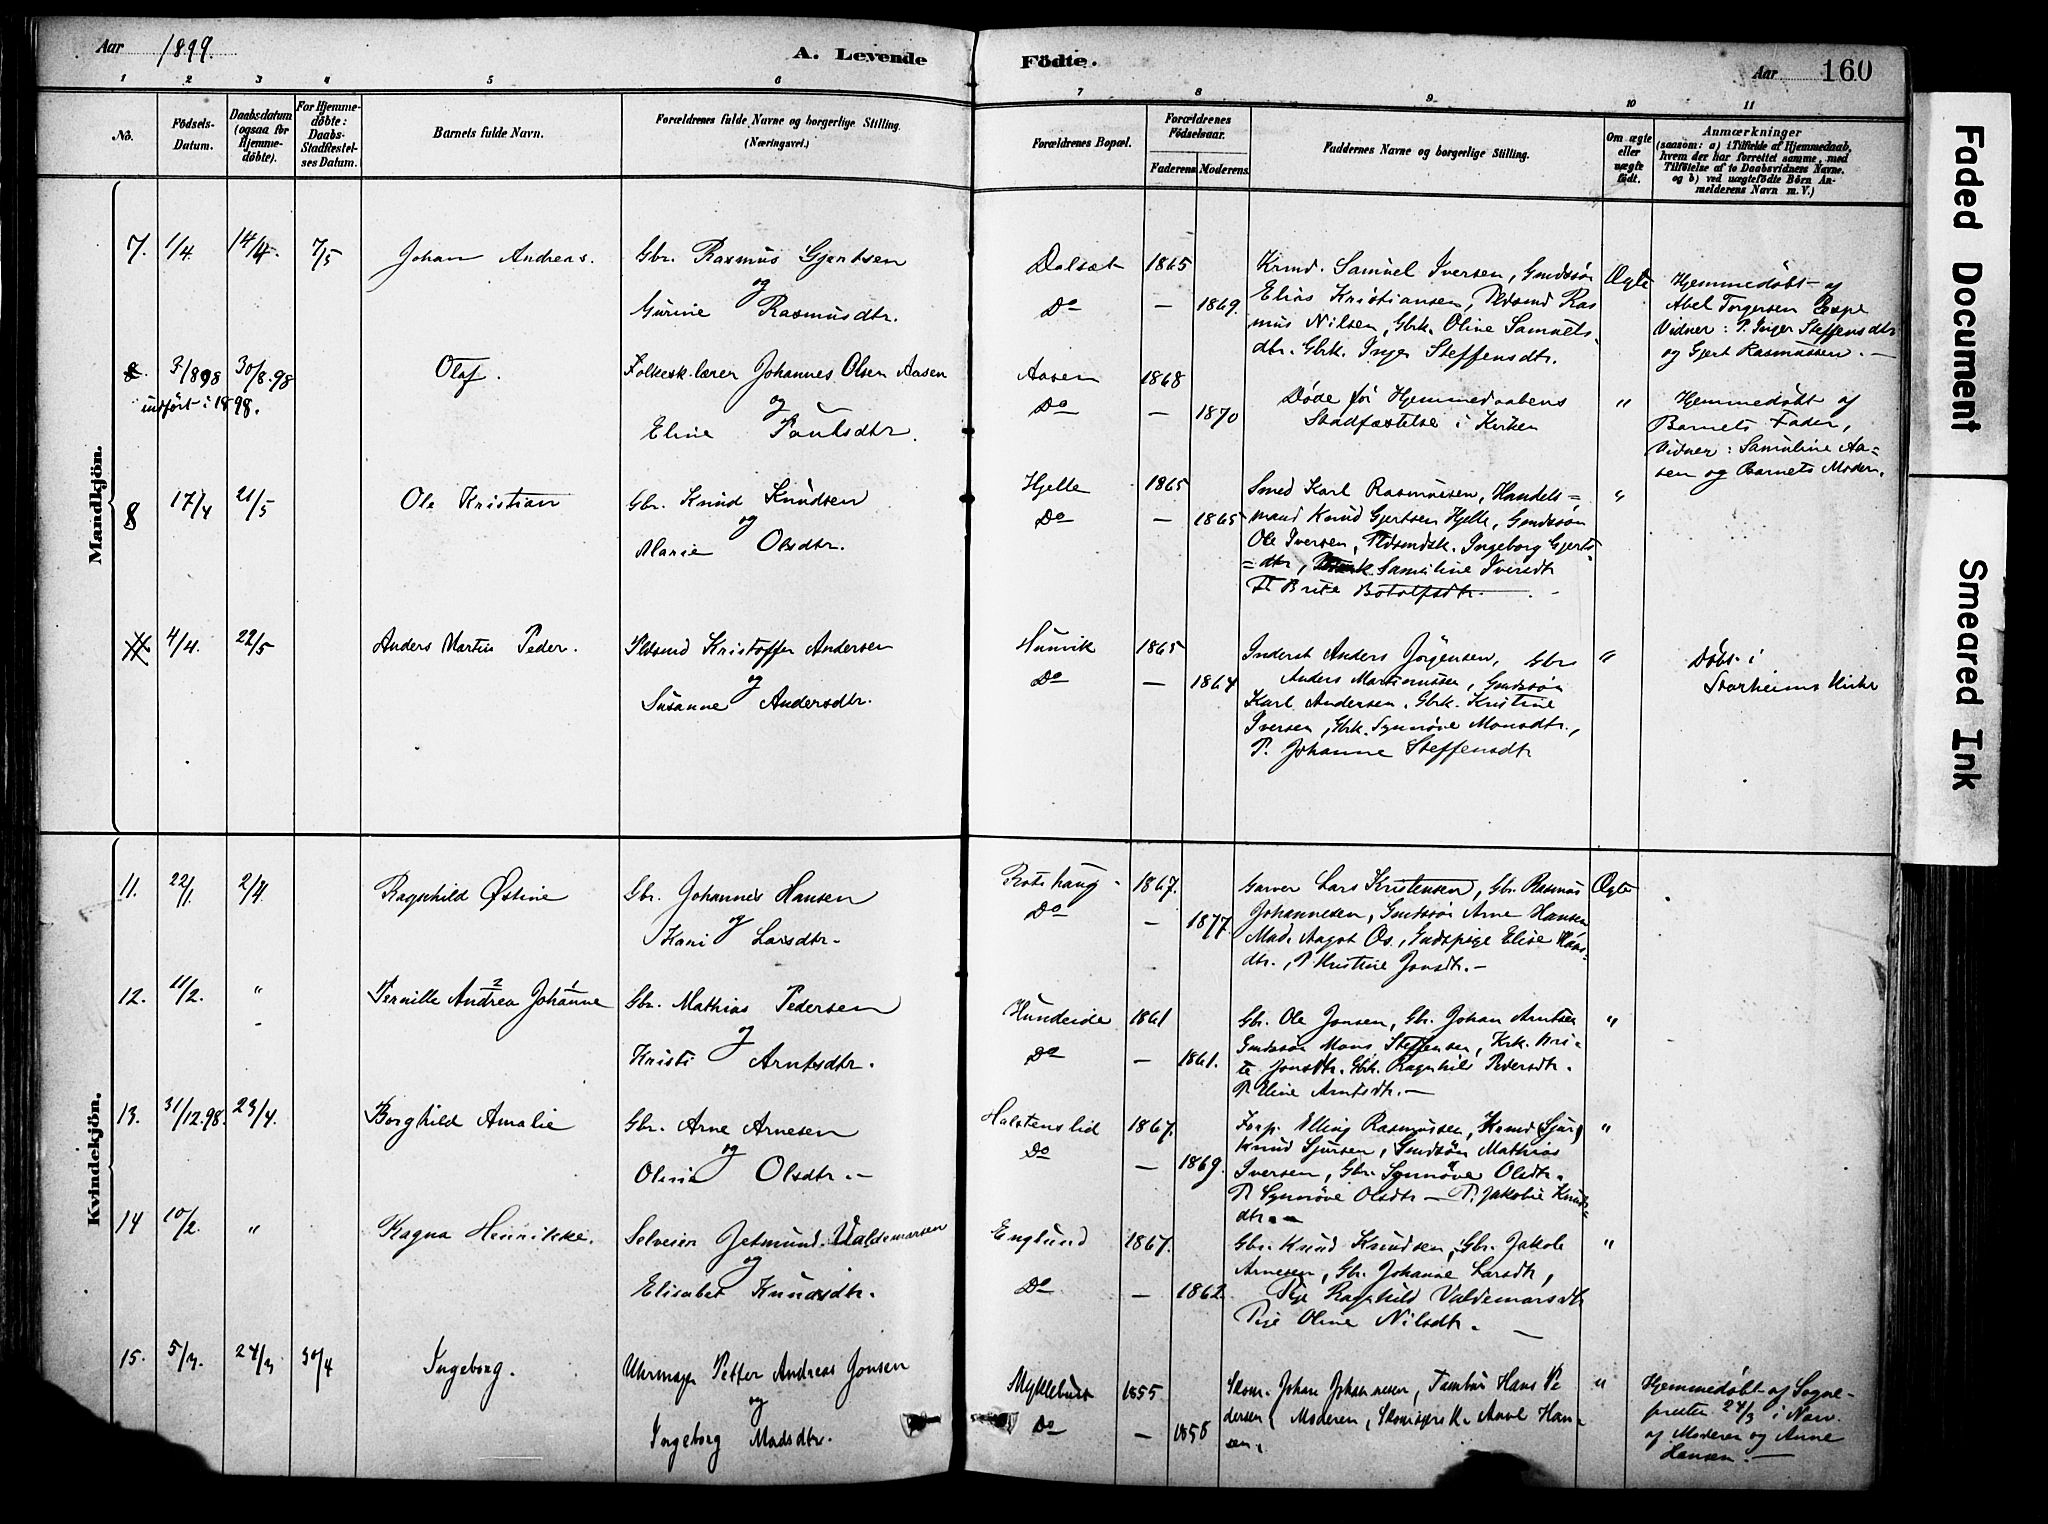 Aar 1899.
A. Levende
Födte.
Aar
160
1 2 3 4 5 6
7 8 9 10 11
No.
Födsels-
Datum.
Daabsdatum
(ogsaa for
Hjemme-
döbte).
For Hjemme-
döbte:
Daabs-
Stadfæstel-
ses Datum.
Barnets fulde Navn.
Forældrenes fulde Navne og borgerlige Stilling.
(Næringsvei.)
Forældrenes Bopæl.
Forældrenes
Födselsaar.
Faderens Moderens.
Faddernes Navne og borgerlige Stilling.
Om ægte
eller
uægte
födt.
Anmærkninger
(saasom: a) i Tilfælde af Hjemmedaab,
hvem der har forrettet samme, med
Tilföielse af to Daabsvidners Navne.
og b) ved uægtefödte Börn An-
melderens Navn m. V.)
Mandkjön.
7. 1/4. 14/4. 7/5 Johan Andreas.
Gbr. Rasmus Gjertsen
og
Gurine Rasmusdtr.
Dalsæt 1865
Do — 1869.
Krmd. Samuel Iversen, Gmdssön
Elias Kristiansen, Pldsmd Ras
mus Nilsen, Gbrk. Oline Samuels
dtr. Gbrk. Inger Steffensdtr.
Ægte
Hjemmedøbt af
Abel Torgersen Espe
Vidner: P. Inger Steffensdtr
og Gjert Rasmussen. —
8. 3/8 98 30/8.98 Olaf.
indført i 1898.
Folkesk.lærer Johannes Olsen Aasen
og
Eline Paulsdtr.
Aasen 1868
Do — 1870
Døde før Hjemmedaabens
Stadfæstelse i Kirken
"
Hjemmedøbt af
Barnets Fader,
Vidner: Samuline Aa-
sen og Barnets Moder.
8 17/4 21/5 Ole Kristian
Gbr. Knud Knudsen
og
Marie Olsdtr.
Hjelle 1865
Do — 1865
Smed Karl Rasmussen, Handels=
mand Knud Gjertsen Hjelle, Gmdssøn
Ole Iversen, Pldsmdsk. Ingeborg Gjerts
=dtr, Samuline Iversdtr
Brite Botolfsdtr.
"
4/4. 22/5 Anders Martin Peder.
Pldsmd Kristoffer Andersen
og
Susanne Andersdtr.
Hunvik 1865
Do — 1864
Inderst Anders Jørgensen, Gbr
Anders Martinussen, Gmdssøn
Karl Andersen, Gbrk. Kristine
Iversen, Gbrk. Synnöve Monsdtr.,
P. Johanne Steffensdtr
"
Døbt i
Starheims Kirke
Kvindekjön.
11. 22/1. 2/4. Ragnhild Østine
Gbr. Johannes Hansen
og
Kari Larsdtr.
Rotshaug 1867.
Do — 1877.
Garver Lars Kristensen, Gbr. Rasmus
Johannesen, Gmdssön Arne Hansen
Mad. Aagot Os, Gmdspige Elise Hans-
dtr., P. Kristine Jonsdtr. —
Ægte
12. 11/2. " Pernille Andrea Johanne
Gbr. Mathias Pedersen
og
Kristi Arntsdtr.
Hundeide 1861
Do — 1861.
Gbr. Ole Jonsen, Gbr. Johan Arntsen
Gmdssøn Mons Steffensen, Krk. Bri-
te Jonsdtr. Gbrk. Ragnhild Pedersdtr.
P. Eline Arntsdtr. —
"
13. 31/12.98. 23/4. Borghild Amalie
Gbr. Arne Arnesen
og
Olivia Olsdtr. —
Halstenslid 1867.
Do — 1869.
Forp. Elling Rasmussen, Krmd (Sjur)
Knud Sjursen, Gmdsøn Mathias
Iversen, Gbr. Synnöve Olsdtr.
P. Synnöve Olsdtr — P. Jakobie Knuds-
dtr.
"
14 10/2. " Ragna Henrikke.
Selveier Jetmund Valdemarsen
og
Elisabet Knudsdtr.
Englund 1867.
Do — 1862.
Gbr. Knud Knudsen, Gbr. Jakob
Arnesen, Gbr. Johanne Larsdtr,
Pige Ragnhild Valdemarsdtr
Pige Oline Nilsdtr. —
"
15. 5/3. 24/3 30/4 Ingeborg.
Uhrmager Petter Andreas Jonsen
og
Ingeborg Madsdtr.
Myklebust 1855
Do — 1858
Skom. Johan Johannesen, Tambur Hans Pe
dersen, Moderen, Anne Han-
sen.
"
Hjemmedøbt af Sogne-
presten 24/3 i Nærv.
af Moderen og Anne
Hansen. —
Faded Document
Smeared Ink